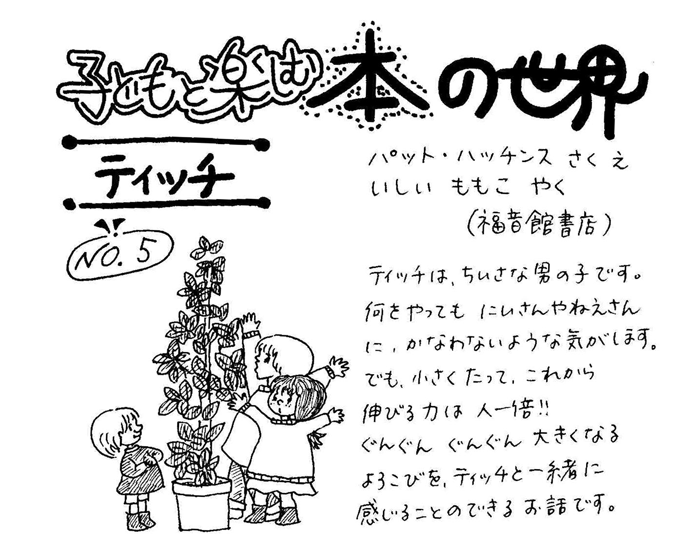 子どもと楽しむ本の世界
ティッチ
NO. 5
パット・ハッチンス さく え
いしい ももこ やく
(福音館書店)
ティッチは、ちいさな男の子です。
何をやっても にいさんやねえさん
に、かなわないような気がします。
でも、小さくたって、これから
伸びる力は 人一倍!!
ぐんぐん ぐんぐん 大きくなる
よろこびを、ティッチと一緒に
感じることのできる お話です。